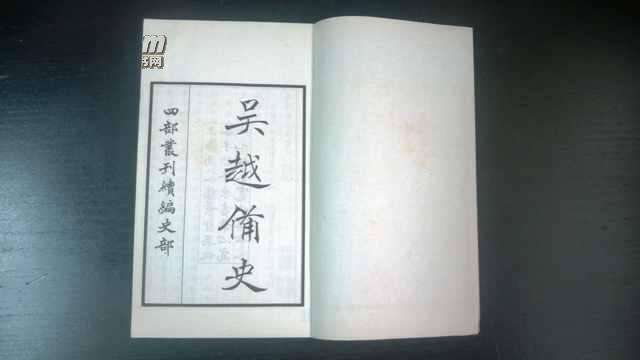 吳越備史
四部叢刊續編史部